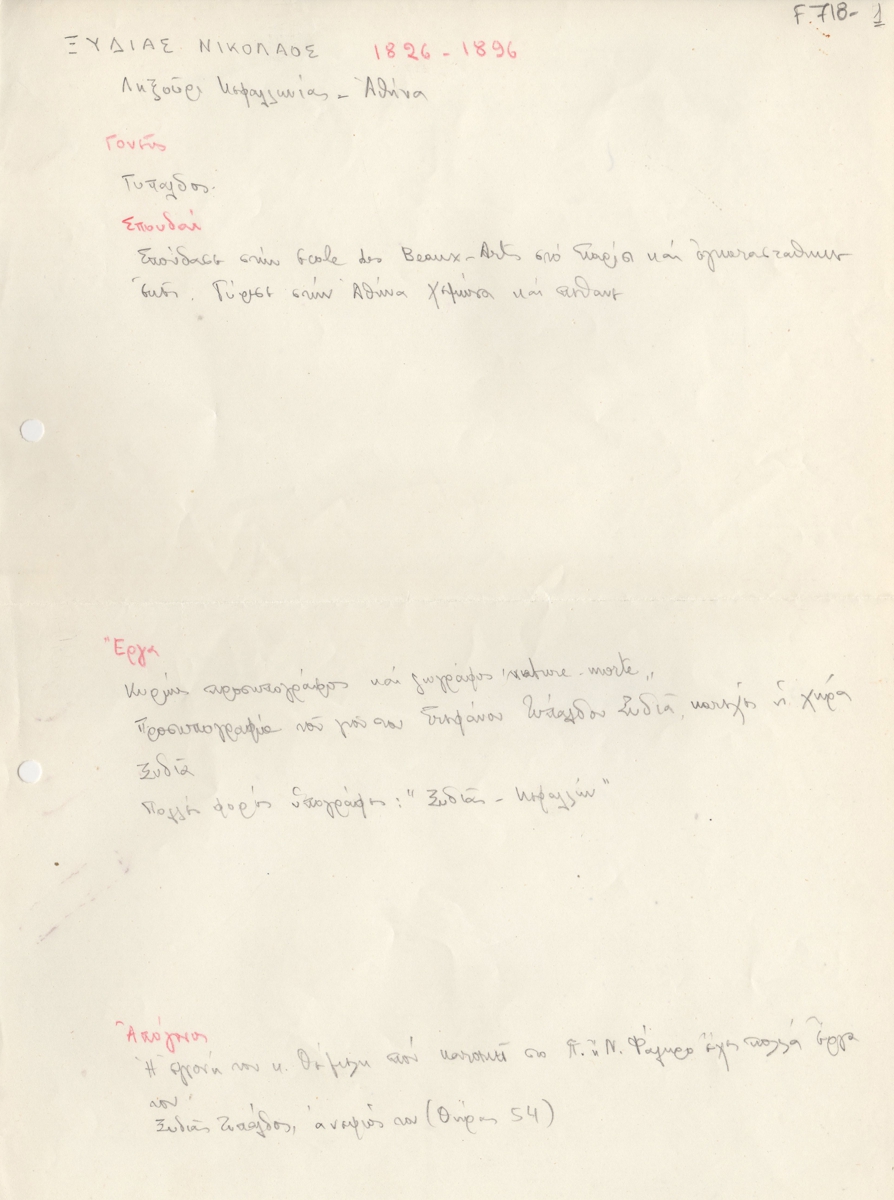 F.718-1
ΞΥΔΙΑΣ ΝΙΚΟΛΑΟΣ 1826-1896
Ληξοῦρι Κεφαλληνίας - Ἀθήνα
Γονεῖς
Τυπάλδος.
Σπουδαί
Σπούδασε στήν Ecole des Beaux-Arts στό Παρίσι καί ἐγκαταστάθηκε
ἐκεῖ. Γύρισε στήν Ἀθήνα καί πέθανε
Ἔργα
Κυρίως προσωπογράφος καί ζωγράφος "nature-morte"
Προσωπογραφία τοῦ γιοῦ του Στεφάνου Τυπάλδου Ξυδιᾶ, κατέχει ἡ χήρα
Ξυδιᾶ
Πολλές φορές ὑπογράφει: "Ξυδιᾶς - Κεφαλλήν"
Ἀπόγονοι
Ἡ ἐγγονή του κ. πού κατοικεῖ στό Π. ἤ Ν. Φάληρο ἔχει πολλά ἔργα
του
Ξυδιᾶς Τυπάλδος, ὁ ἀνεψιός του (Θήρας 54)